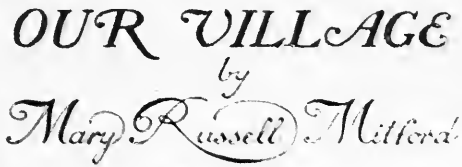 OUR VILLAGE
by
Mary Russell Mitford